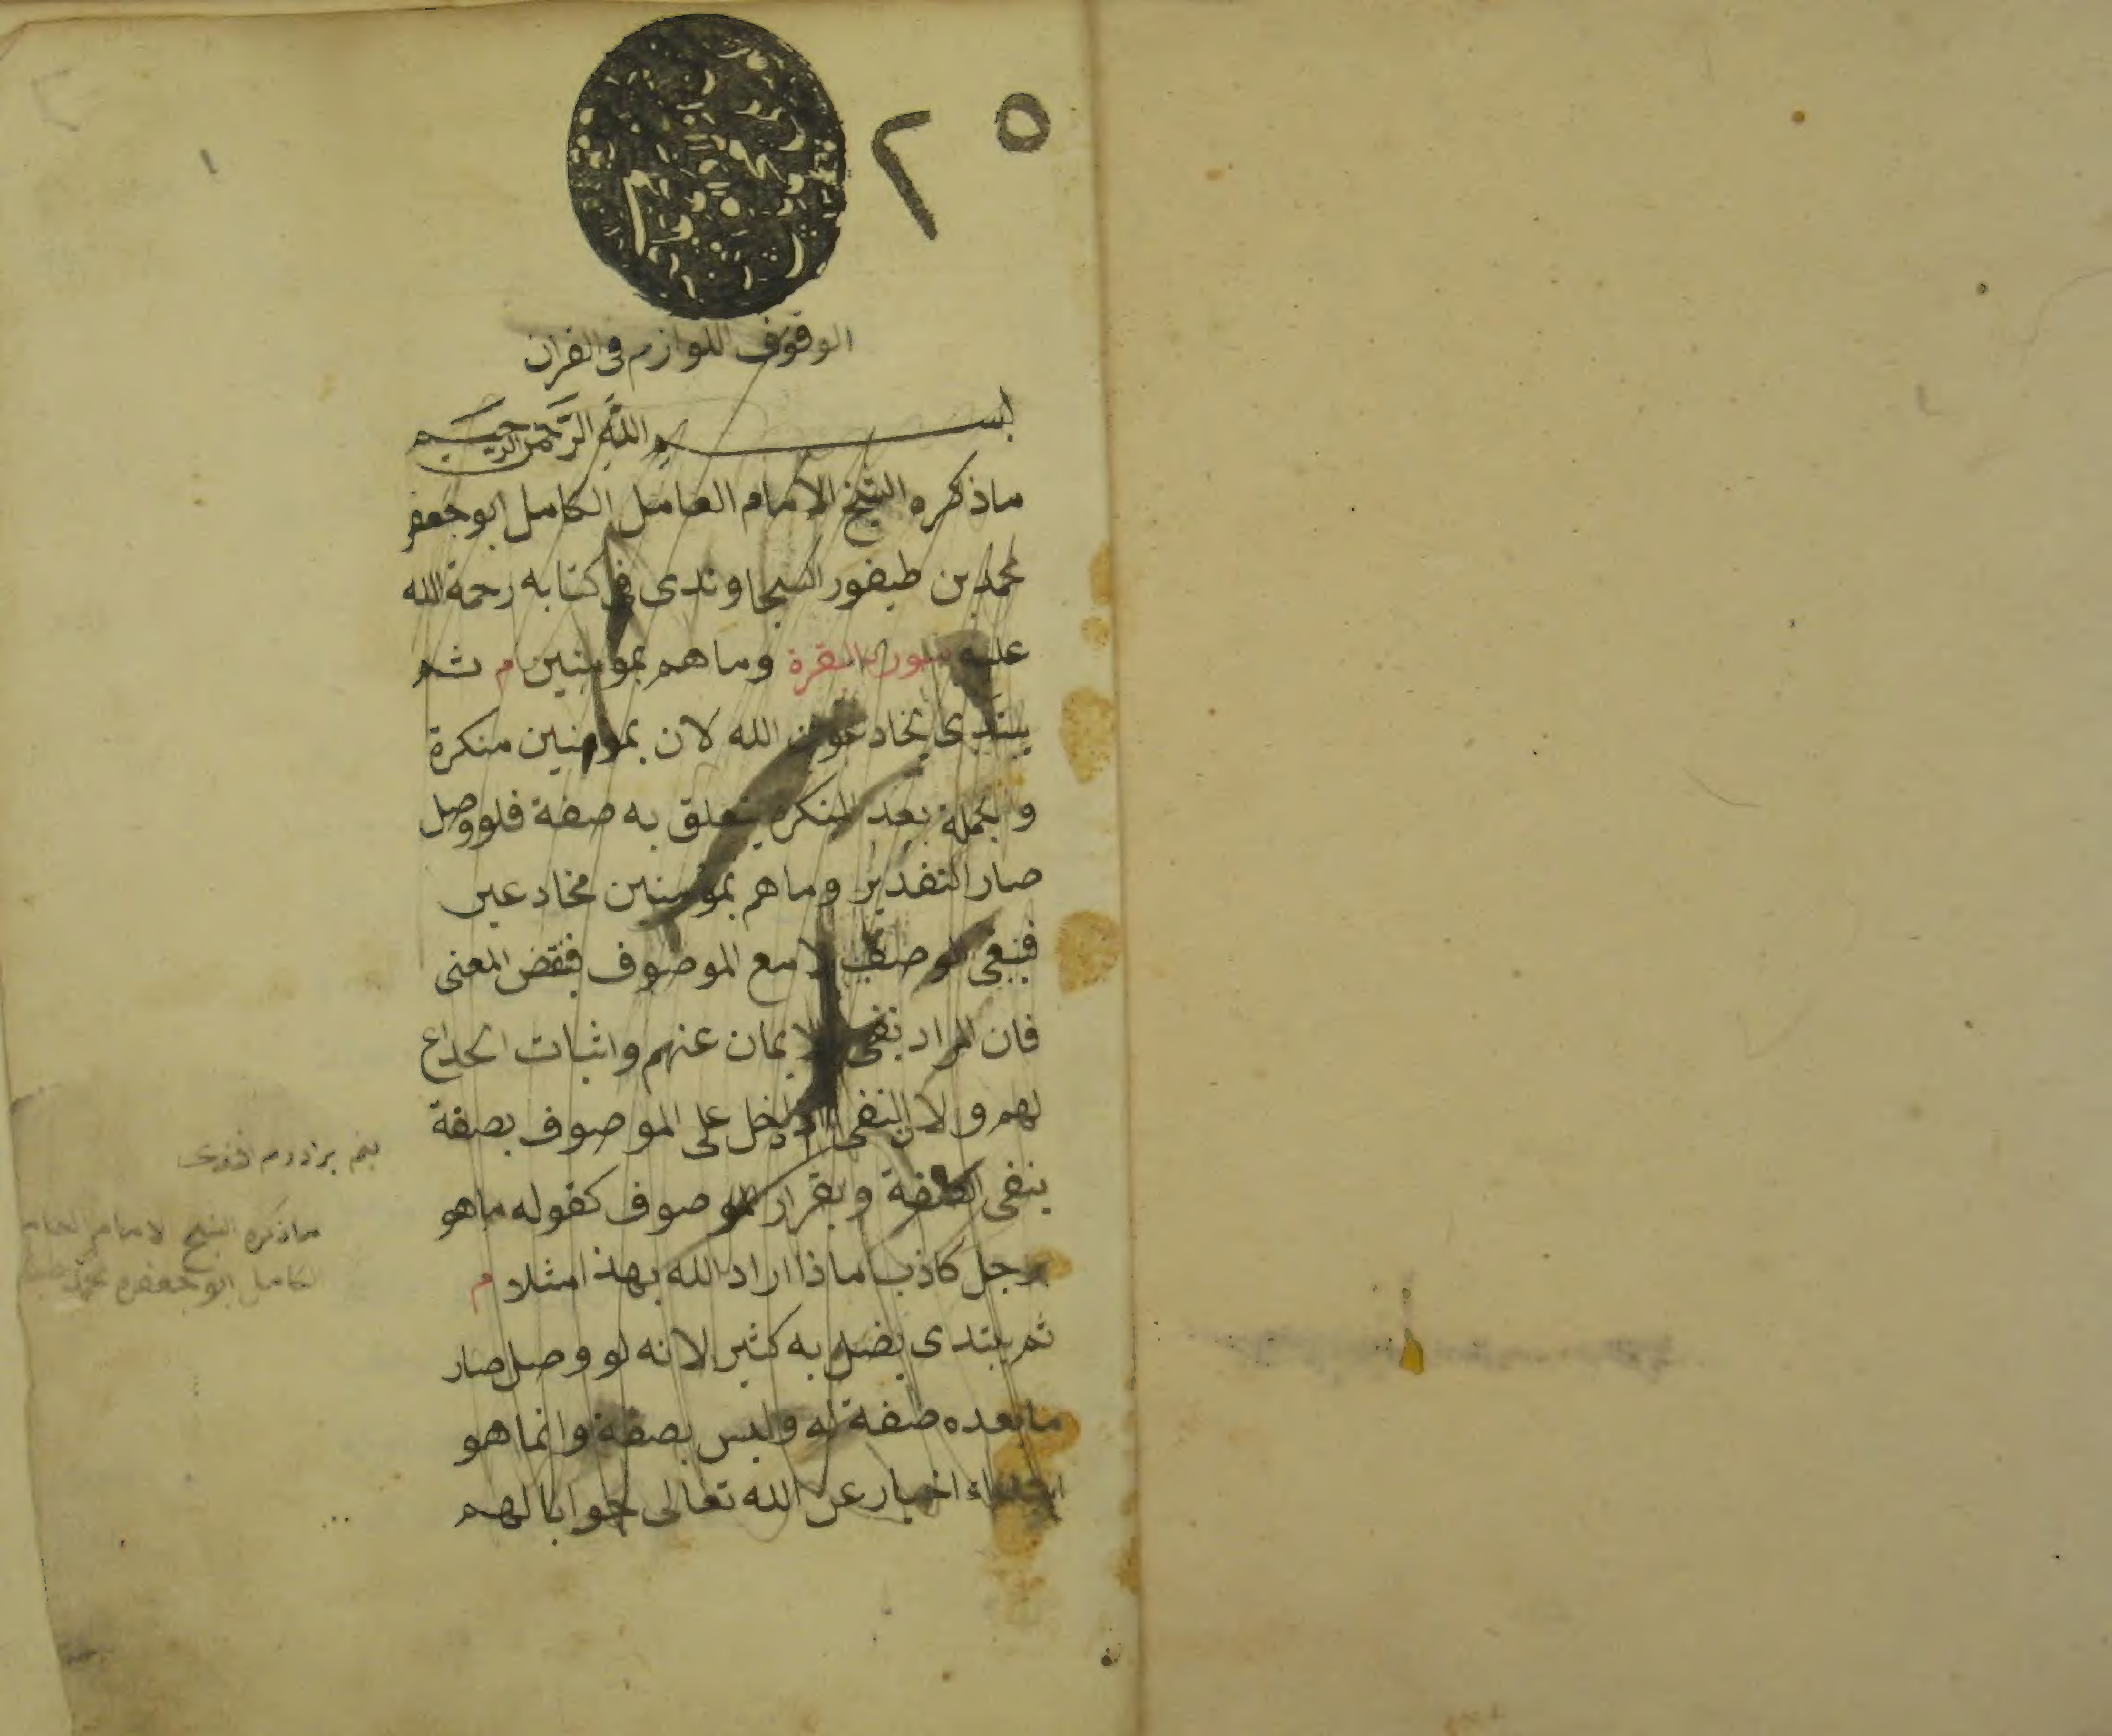 ٢٥
الوقوف اللوازم فى القران
بسم الله الرحمن الرحيم
ماذكره الشيخ الامام العامل الكامل ابو جعفر
محمد بن طيفور السجاوندى فى كتابه رحمة الله
عليه سورة البقرة وما هم بمومنين م ثم
يبتدى يخادعون الله لان بمومنين منكرة
والجملة بعد المنكرة يتعلق به صفة فلو وصل
صار التقدير وما هم بمومنين مخادعين
فينفى الوصف لا مع الموصوف فنقض المعنى
فان المراد نفى الايمان عنهم واثبات الخداع
لهم ولان النفى اذا دخل على الموصوف بصفة
ينفى الصفة ويقرر الموصوف كقوله ما هو
برجل كاذب ماذا اراد الله بهذا مثلا م
ثم يبتدى يضل به كثيرا لانه لو وصل صار
ما بعده صفة له وليس بصفة وانما هو
ابتداء اخبار عن الله تعالى جوابا لهم
ماذكره الشيخ الامام
الكامل ابو جعفر محمد